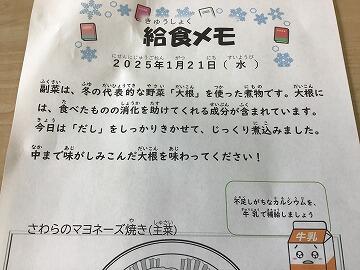 給食メモ
2025年1月21日(水)
副菜は、冬の代表的な野菜「大根」を使った煮物です。大根に
は、食べたものの消化を助けてくれる成分が含まれています。
今日は「だし」をしっかりきかせて、じっくり煮込みました。
中まで味がしみこんだ大根を味わってください！
不足しがちなカルシウムを、
牛乳で補給しましょう
さわらのマヨネーズ焼き(主菜)
牛乳